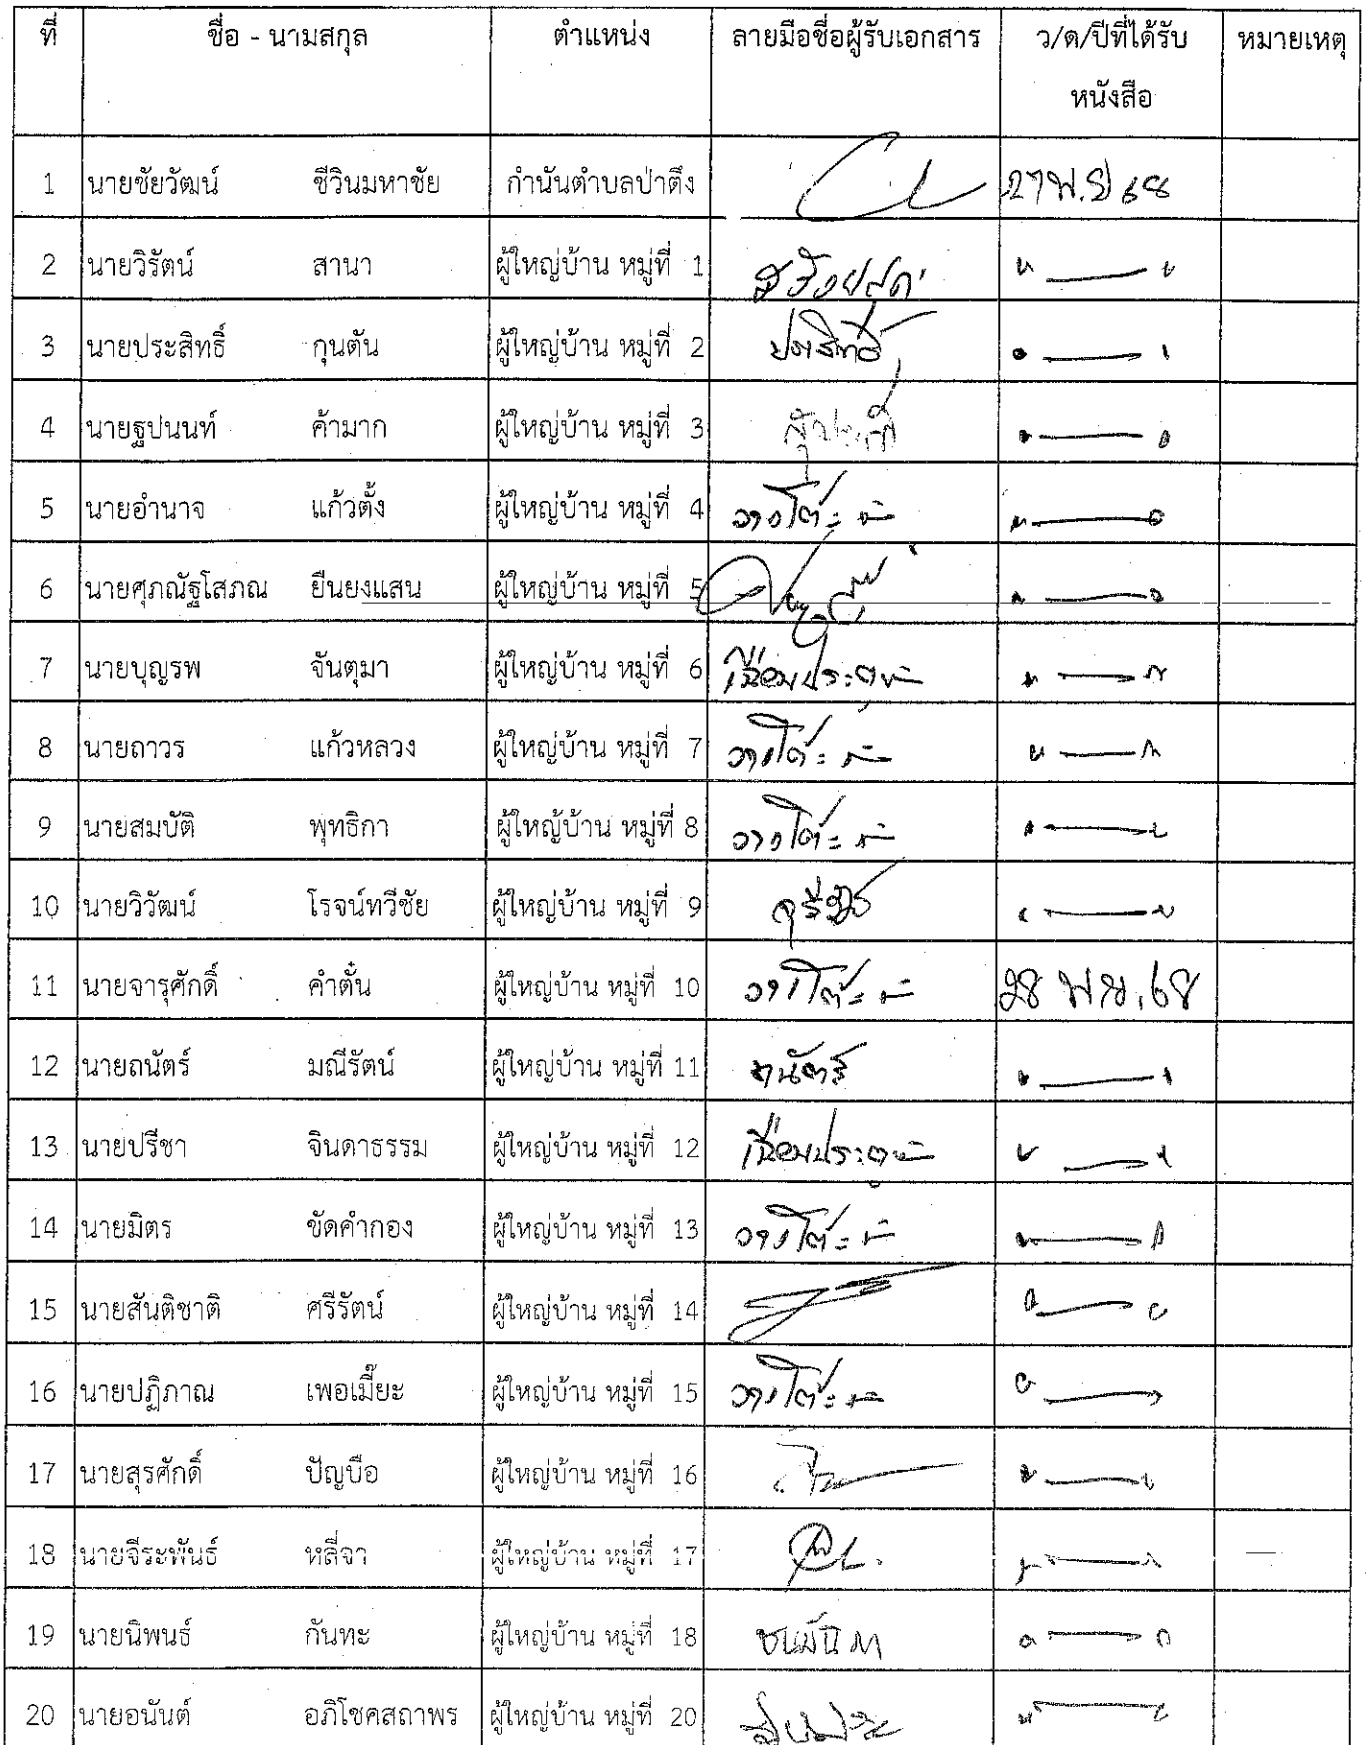 ที่ ชื่อ - นามสกุล ตำแหน่ง ลายมือชื่อผู้รับเอกสาร ว/ด/ปีที่ได้รับ หมายเหตุ
หนังสือ
1 นายชัยวัฒน์ ชีวินมหาชัย กำนันตำบลป่าตึง 27 พ.ย 68
2 นายวิรัตน์ สานา ผู้ใหญ่บ้าน หมู่ที่ 1
3 นายประสิทธิ์ กุนตัน ผู้ใหญ่บ้าน หมู่ที่ 2 ประสิทธิ์
4 นายฐปนนท์ ค้ามาก ผู้ใหญ่บ้าน หมู่ที่ 3
5 นายอำนาจ แก้วตั้ง ผู้ใหญ่บ้าน หมู่ที่ 4 วางโต๊ะ
6 นายศุภณัฐโสภณ ยืนยงแสน ผู้ใหญ่บ้าน หมู่ที่ 5
7 นายบุญรพ จันตุมา ผู้ใหญ่บ้าน หมู่ที่ 6
8 นายถาวร แก้วหลวง ผู้ใหญ่บ้าน หมู่ที่ 7 วางโต๊ะ
9 นายสมบัติ พุทธิกา ผู้ใหญ้บ้าน หมู่ที่ 8 วางโต๊ะ
10 นายวิวัฒน์ โรจน์ทวีชัย ผู้ใหญ่บ้าน หมู่ที่ 9
11 นายจารุศักดิ์ คำตั๋น ผู้ใหญ่บ้าน หมู่ที่ 10 วางโต๊ะ 28 พ.ย. 68
12 นายถนัตร์ มณีรัตน์ ผู้ใหญ่บ้าน หมู่ที่ 11 ถนัตร์
13 นายปรีชา จินดาธรรม ผู้ใหญ่บ้าน หมู่ที่ 12
14 นายมิตร ขัดคำกอง ผู้ใหญ่บ้าน หมู่ที่ 13 วางโต๊ะ
15 นายสันติชาติ ศรีรัตน์ ผู้ใหญ่บ้าน หมู่ที่ 14
16 นายปฏิภาณ เพอเมี๊ยะ ผู้ใหญ่บ้าน หมู่ที่ 15 วางโต๊ะ
17 นายสุรศักดิ์ ปัญบือ ผู้ใหญ่บ้าน หมู่ที่ 16
18 นายจีระพันธ์ หลี่จา ผู้ใหญ่บ้าน หมู่ที่ 17
19 นายนิพนธ์ กันทะ ผู้ใหญ่บ้าน หมู่ที่ 18
20 นายอนันต์ อภิโชคสถาพร ผู้ใหญ่บ้าน หมู่ที่ 20